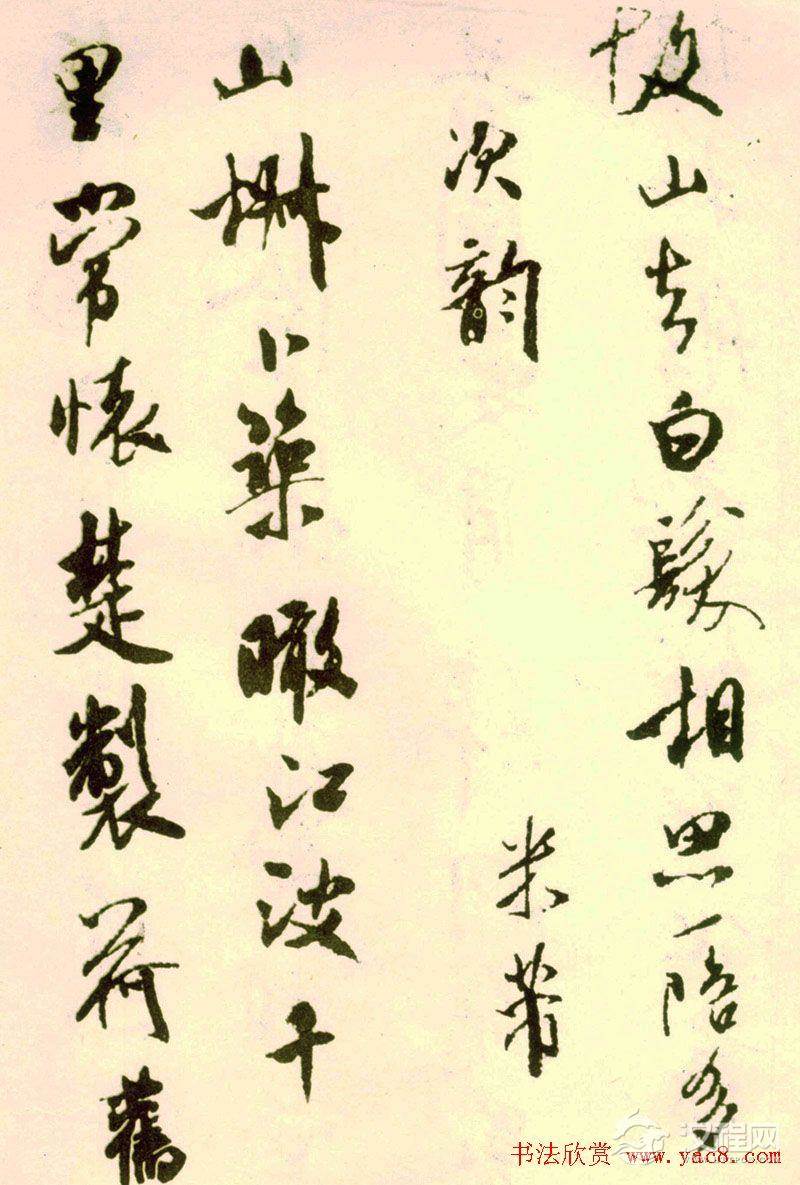 故山去白髮相思一陪多
次韻 米芾
山椒卜築瞰江波千
里常懷楚製荷舊
汉程网
书法欣赏 www.yac8.com